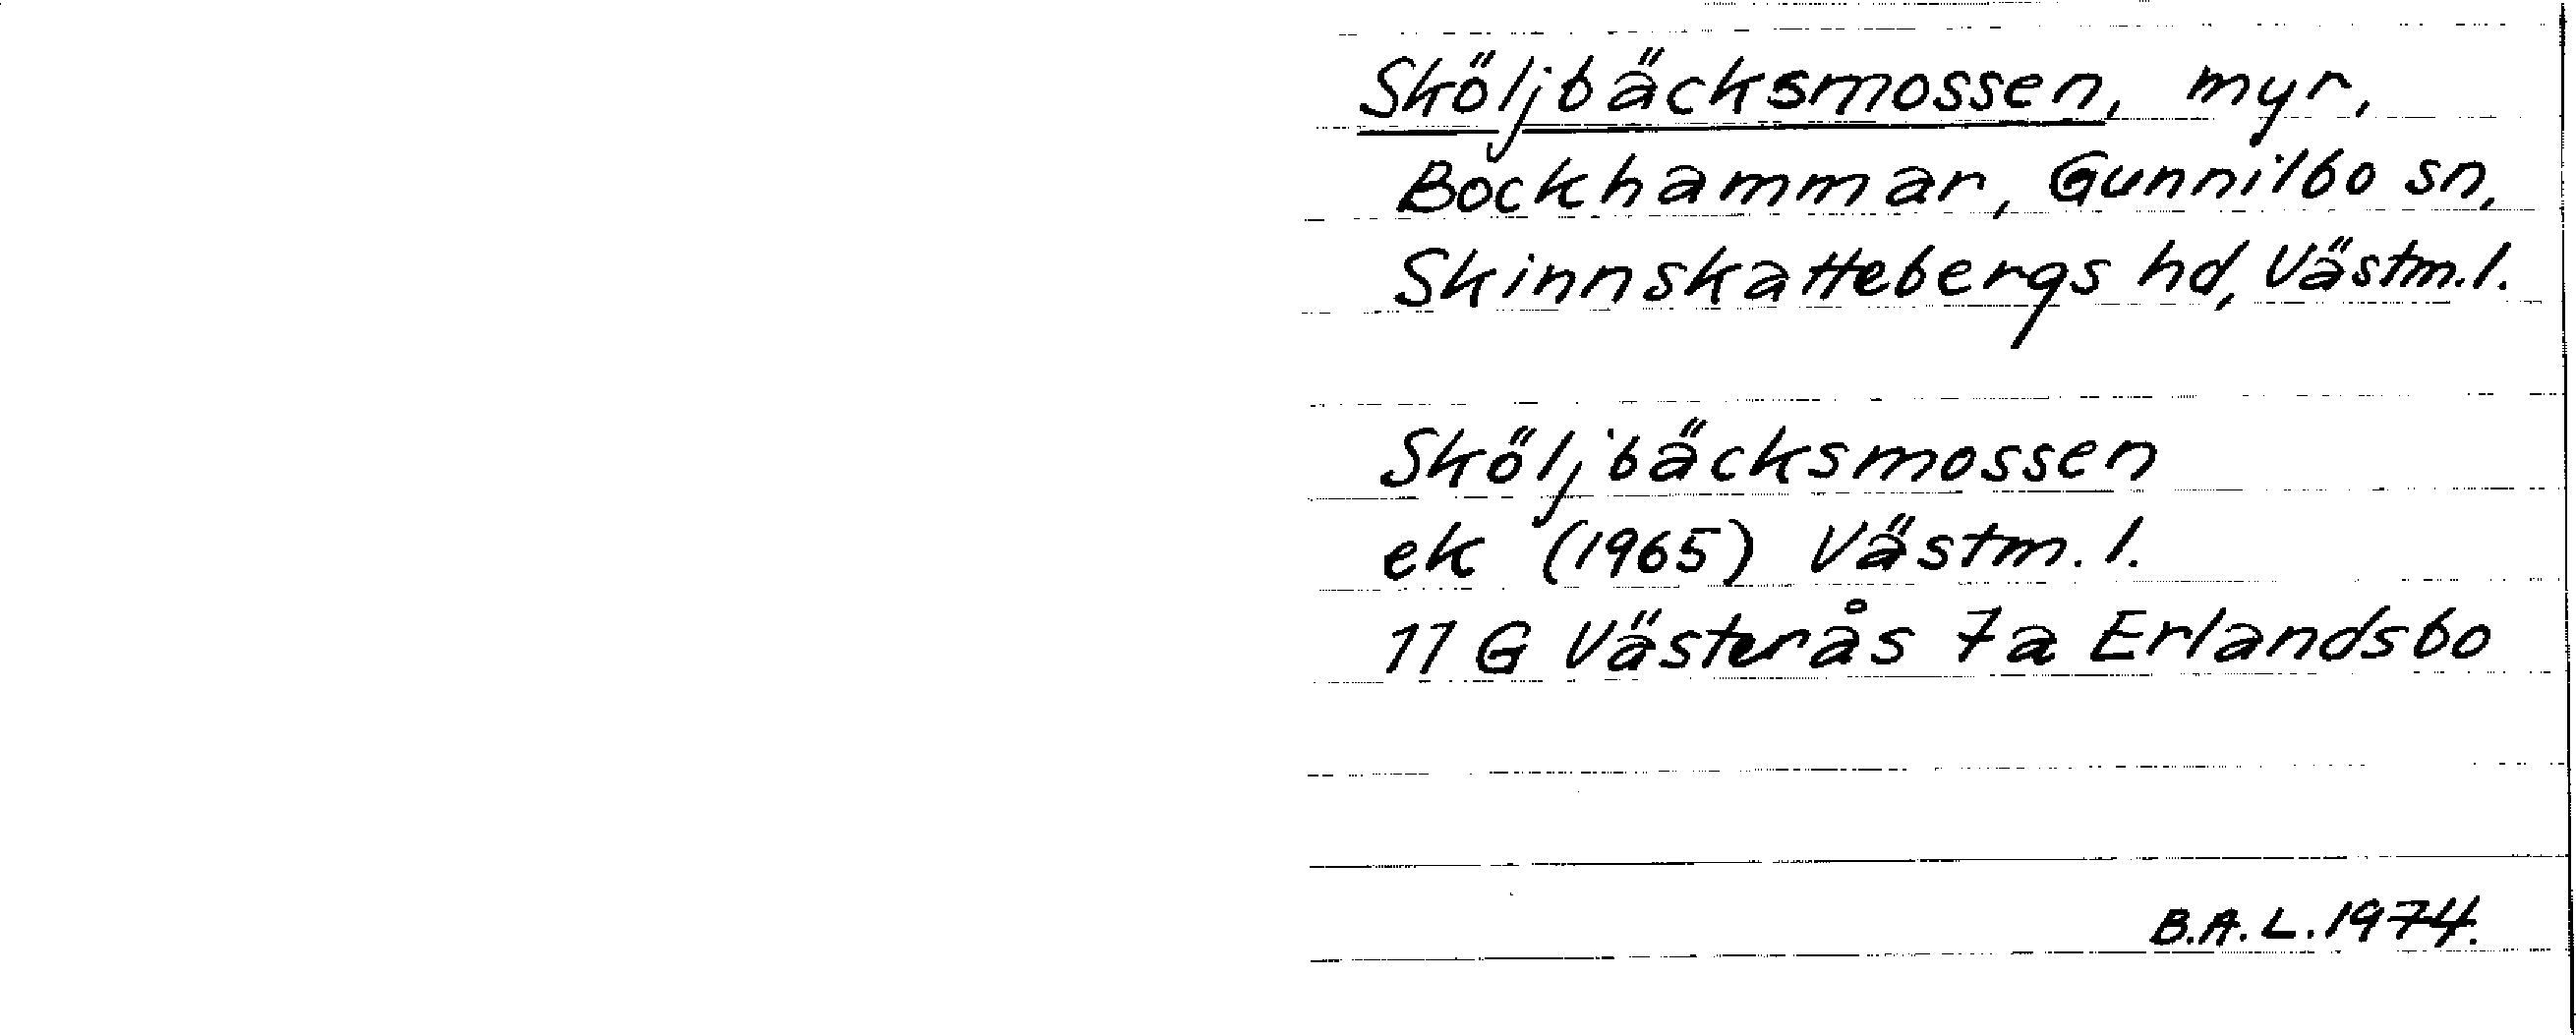 Sköljbäcksmossen, myr,
Bockhammar, Gunnilbo sn,
Skinnskattebergs hd, Västm.l.
Sköljbäcksmossen
ek (1965) Västm.l.
11 G Västerås 7a Erlandsbo
B.A.L. 1974.